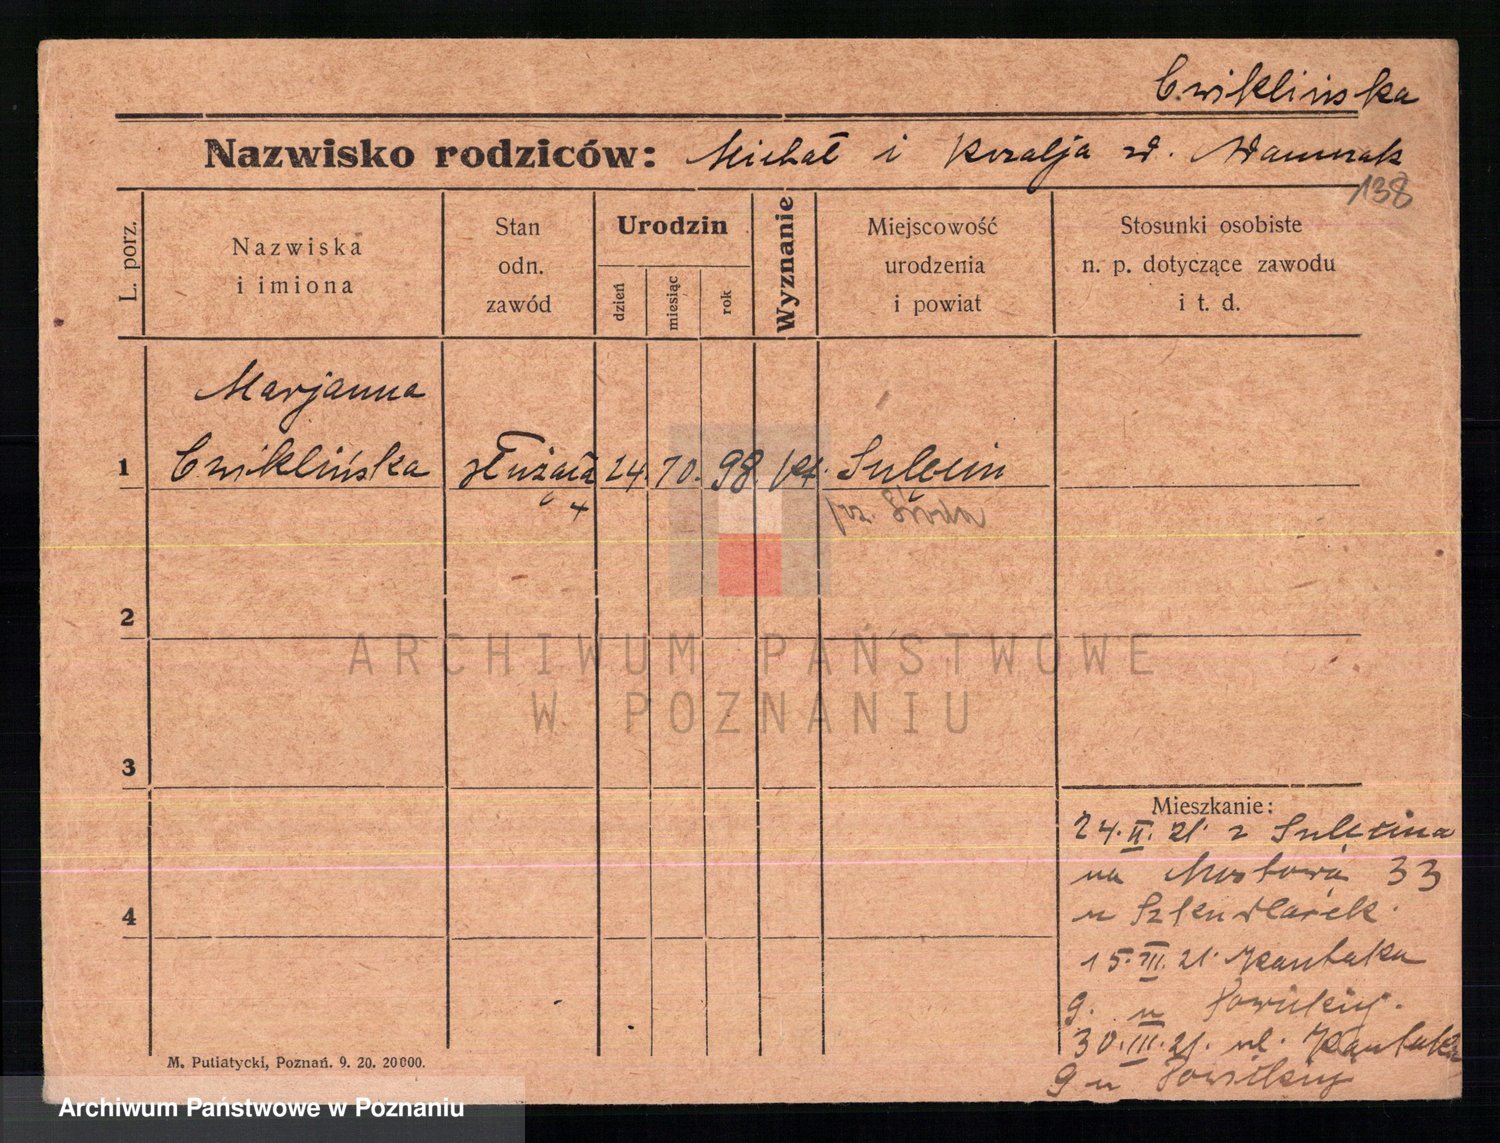 Cwiklińska
Nazwisko rodziców: Michał i Rozalja zd. Adamczak
138
L. porz.
Nazwiska
i imiona
Stan
odn.
zawód
Urodzin
dzień
miesiąc
rok
Wyznanie
Miejscowość
urodzenia
i powiat
Stosunki osobiste
n. p. dotyczące zawodu
i t. d.
Marjanna
1 Cwiklińska służąca 24. 10. 98. kt. Sulęcin
+
pow. Środa
2
ARCHIWUM PAŃSTWOWE
W POZNANIU
3
Mieszkanie:
24. II. 21. z Sulęcina
na Mostową 33
u
4
15. III. 21. Kantaka
9. u
30. III. 21. ul. Kantaka
9 u
M. Putiatycki, Poznań. 9. 20. 20000.
Archiwum Państwowe w Poznaniu